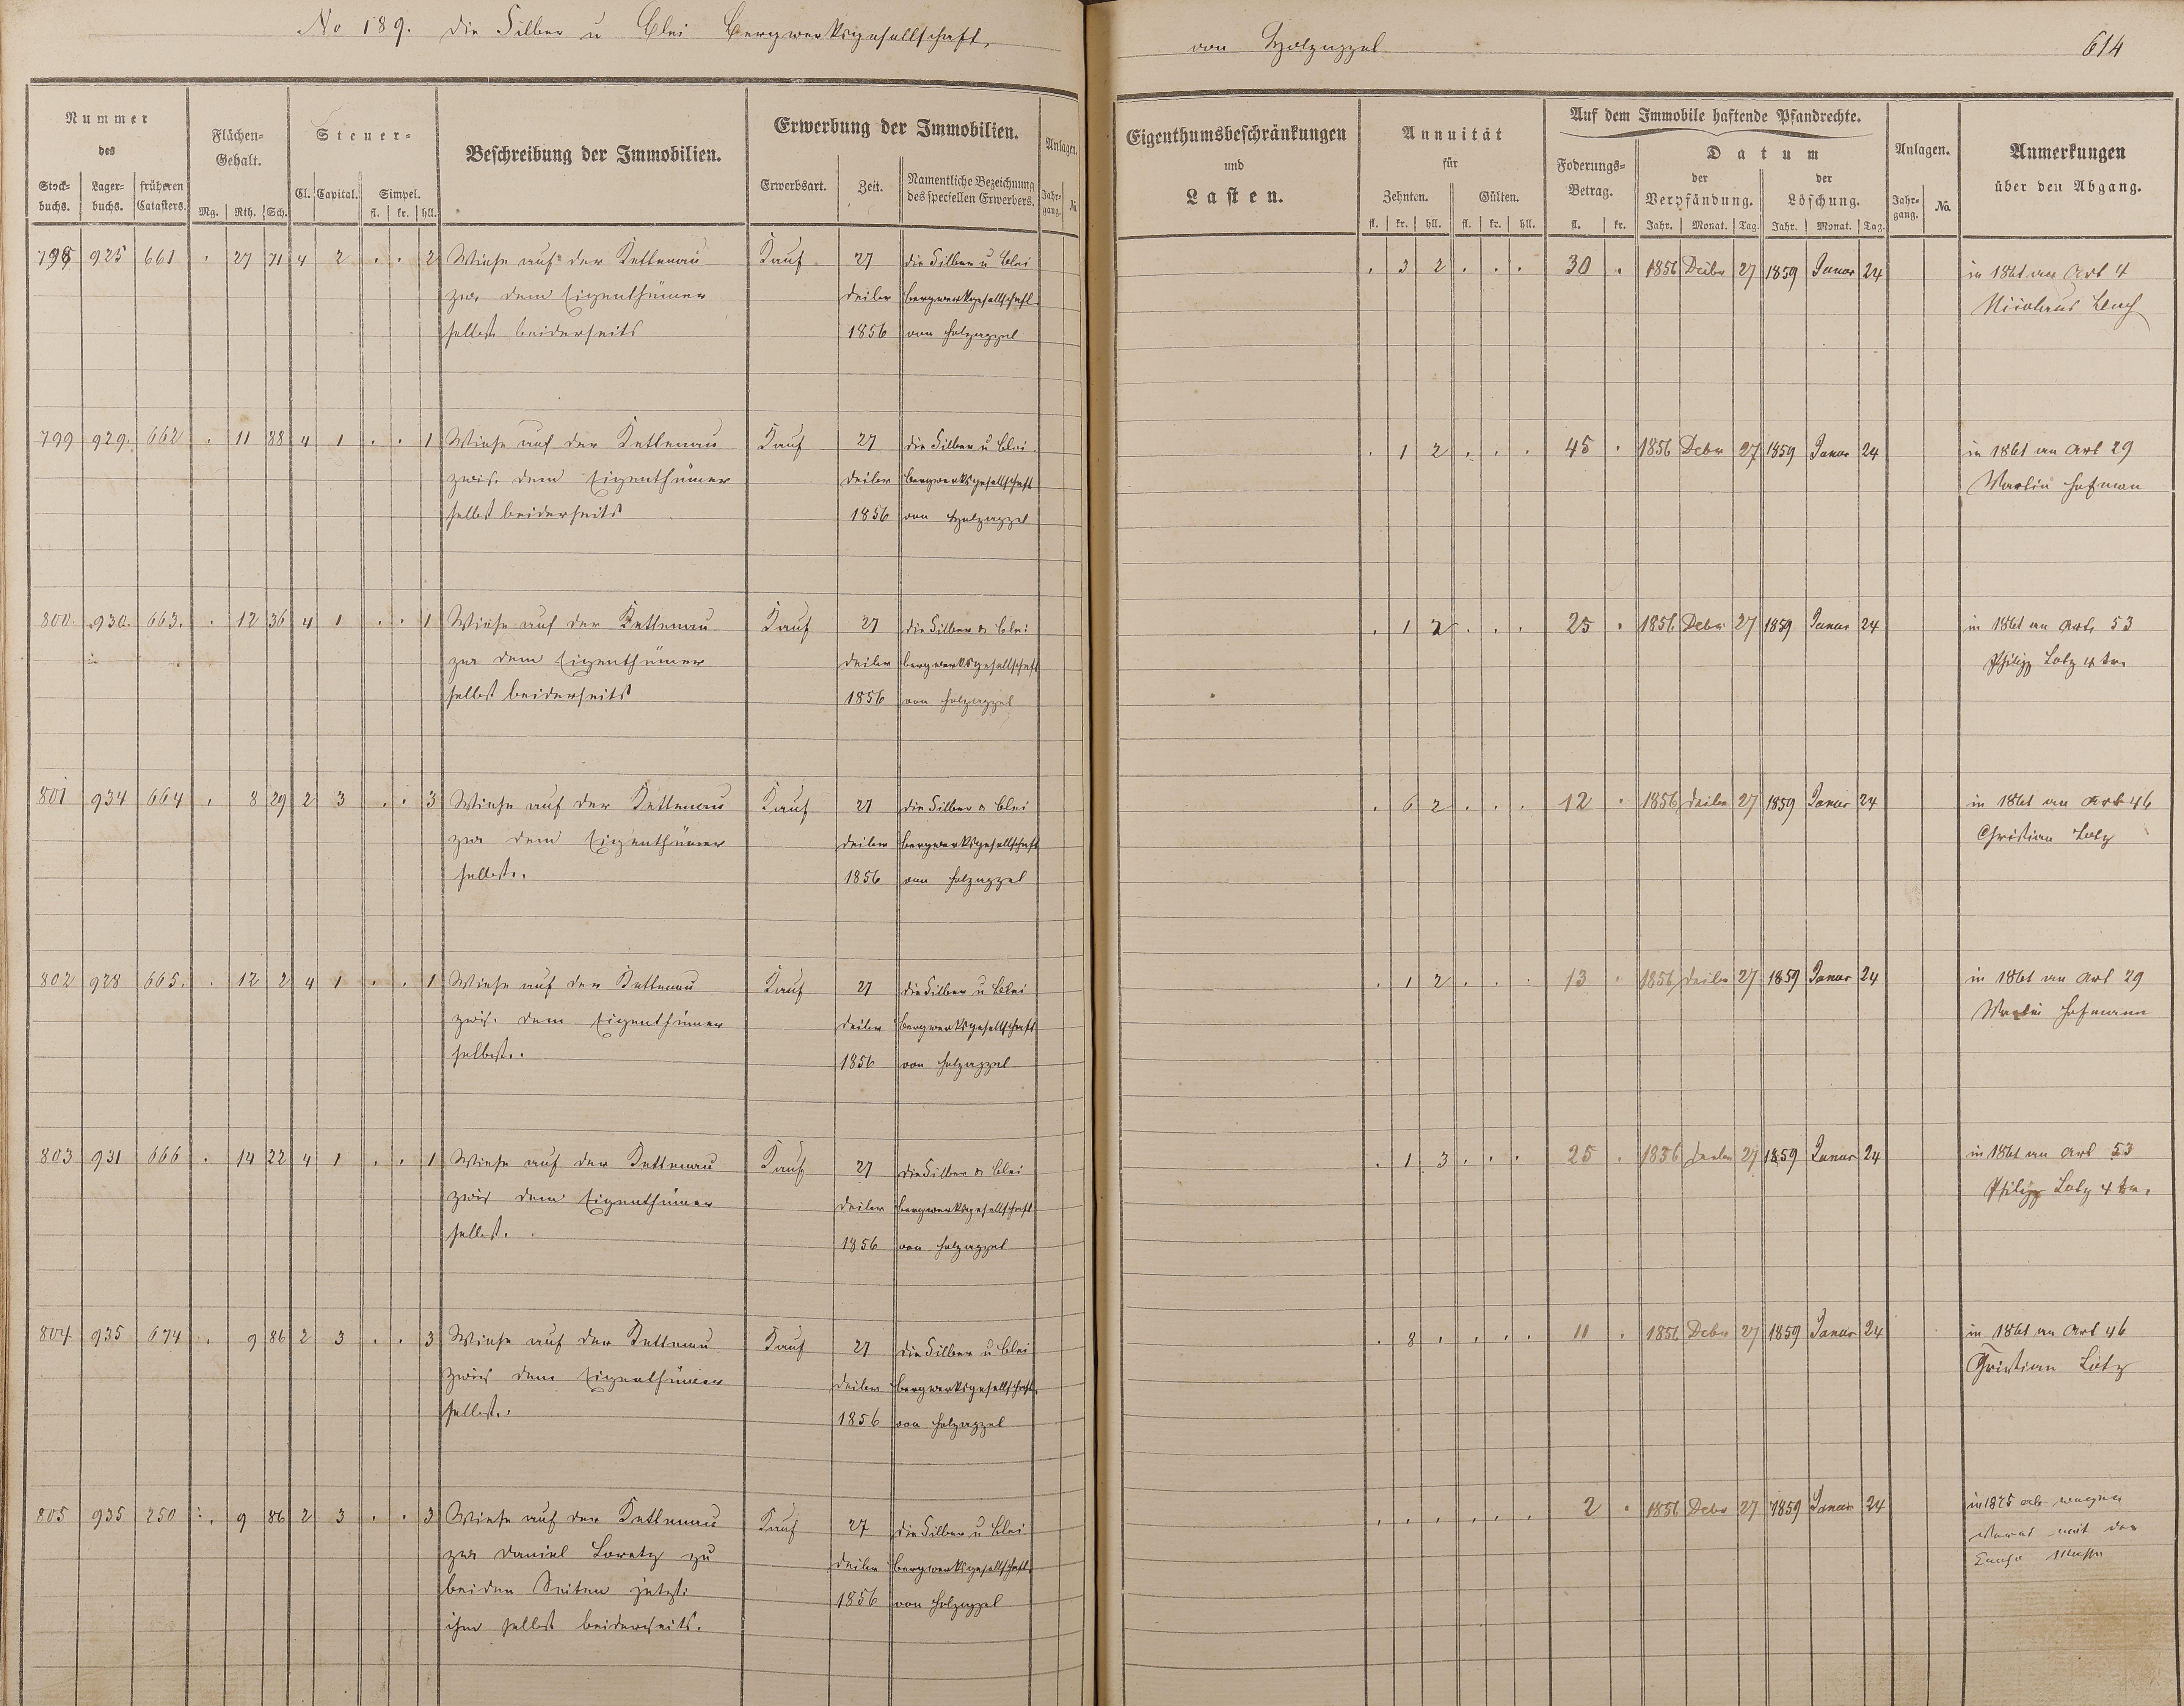 No 189. die Silber u Blei Bergwerksgesellschaft,
von Holzappel
614
Nummer
des
Stock-
buchs.
Lager-
buchs.
früheren
Catasters.
Flächen-
Gehalt.
Mg. Rth. Sch.
Steuer-
Cl. Capital. Simpel.
fl. kr. hll.
Beschreibung der Immobilien.
Erwerbung der Immobilien.
Erwerbsart. Zeit. Namentliche Bezeichnung
des speciellen Erwerbers.
Anlagen.
Jahr-
gang. No.
Eigenthumsbeschränkungen
und
Lasten.
Annuität
für
Zehnten. Gülten.
fl. kr. hll. fl. kr. hll.
Auf dem Immobile haftende Pfandrechte.
Foderungs-
Betrag.
fl. kr.
Datum
der der
Verpfändung. Löschung.
Jahr. Monat. Tag. Jahr. Monat. Tag.
Anlagen.
Jahr-
gang. No.
Anmerkungen
über den Abgang.
798 925 661 . 27 71 4 2 . . 2 Wiese auf der Kettenau Kauf 27 die Silber u Blei . 3 2 . . . 30 . 1856 Dcbr 27 1859 Januar 24 in 1861 an Art 4
zw. dem Eigenthümer Dcibr Bergwerksgesellschaft
selbst beiderseits 1856 von Holzappel
799 929. 662 . 11 88 4 1 . . 1 Wiese auf der Kettenau Kauf 27 die Silber u Blei . 1 2 . . . 45 . 1856 Dcbr 27 1859 Januar 24 in 1861 an Art 29
zwis. dem Eigenthümer Dcibr Bergwerksgesellschaft Martin Hofman
selbst beiderseits 1856 von Holzappel
800. 930. 663. . 12 36 4 1 . . 1 Wiese auf der Kettenau Kauf 27 die Silber u Blei . 1 2 . . . 25 . 1856 Dcbr 27 1859 Januar 24 in 1861 an Art. 53
zw dem Eigenthümer Dcibr Bergwerksgesellschaft Philipp Lotz 4 ter
selbst beiderseits 1856 von Holzappel
801 934 664 . 8 29 2 3 . . 3 Wiese auf der Kettenau Kauf 27 die Silber u Blei . 6 2 . . . 12 . 1856 Dcibr 27 1859 Januar 24 in 1861 an Art 46
zw dem Eigenthümer Dcibr Bergwerksgesellschaft Christian Lotz
selbst. 1856 von Holzappel
802 928 665. . 12 2 4 1 . . 1 Wiese auf der Kettenau Kauf 27 die Silber u Blei . 1 2 . . . 13 . 1856 Dcibr 27 1859 Januar 24 in 1861 an Art 29
zwis. dem Eigenthümer Dcibr Bergwerksgesellschaft Martin Hofmann
selbst. 1856 von Holzappel
803 931 666 . 14 22 4 1 . . 1 Wiese auf der Kettenau Kauf 27 die Silber u Blei . 1 3 . . . 25 . 1856 Dcibr 27 1859 Januar 24 in 1861 an Art 53
zwis dem Eigenthümer Dcibr Bergwerksgesellschaft Philipp Lotz 4 ter
selbst. 1856 von Holzappel
804 935 674 . 9 86 2 3 . . 3 Wiese auf der Kettenau Kauf 27 die Silber u Blei . 8 . . . . 11 . 1856 Dcbr 27 1859 Januar 24 in 1861 an Art 46
zwis dem Eigenthümer Dcibr Bergwerksgesellschaft Christian Lotz
selbst. 1856 von Holzappel
805 935 250 . 9 86 2 3 . . 3 Wiese auf der Kettenau Kauf 27 die Silber u Blei . . . . . . 2 . 1856 Dcbr 27 1859 Januar 24 in 1875
zw Daniel Loretz zu Dcibr Bergwerksgesellschaft
beiden Seiten jetzt: 1856 von Holzappel
ihm selbst beiderseits.